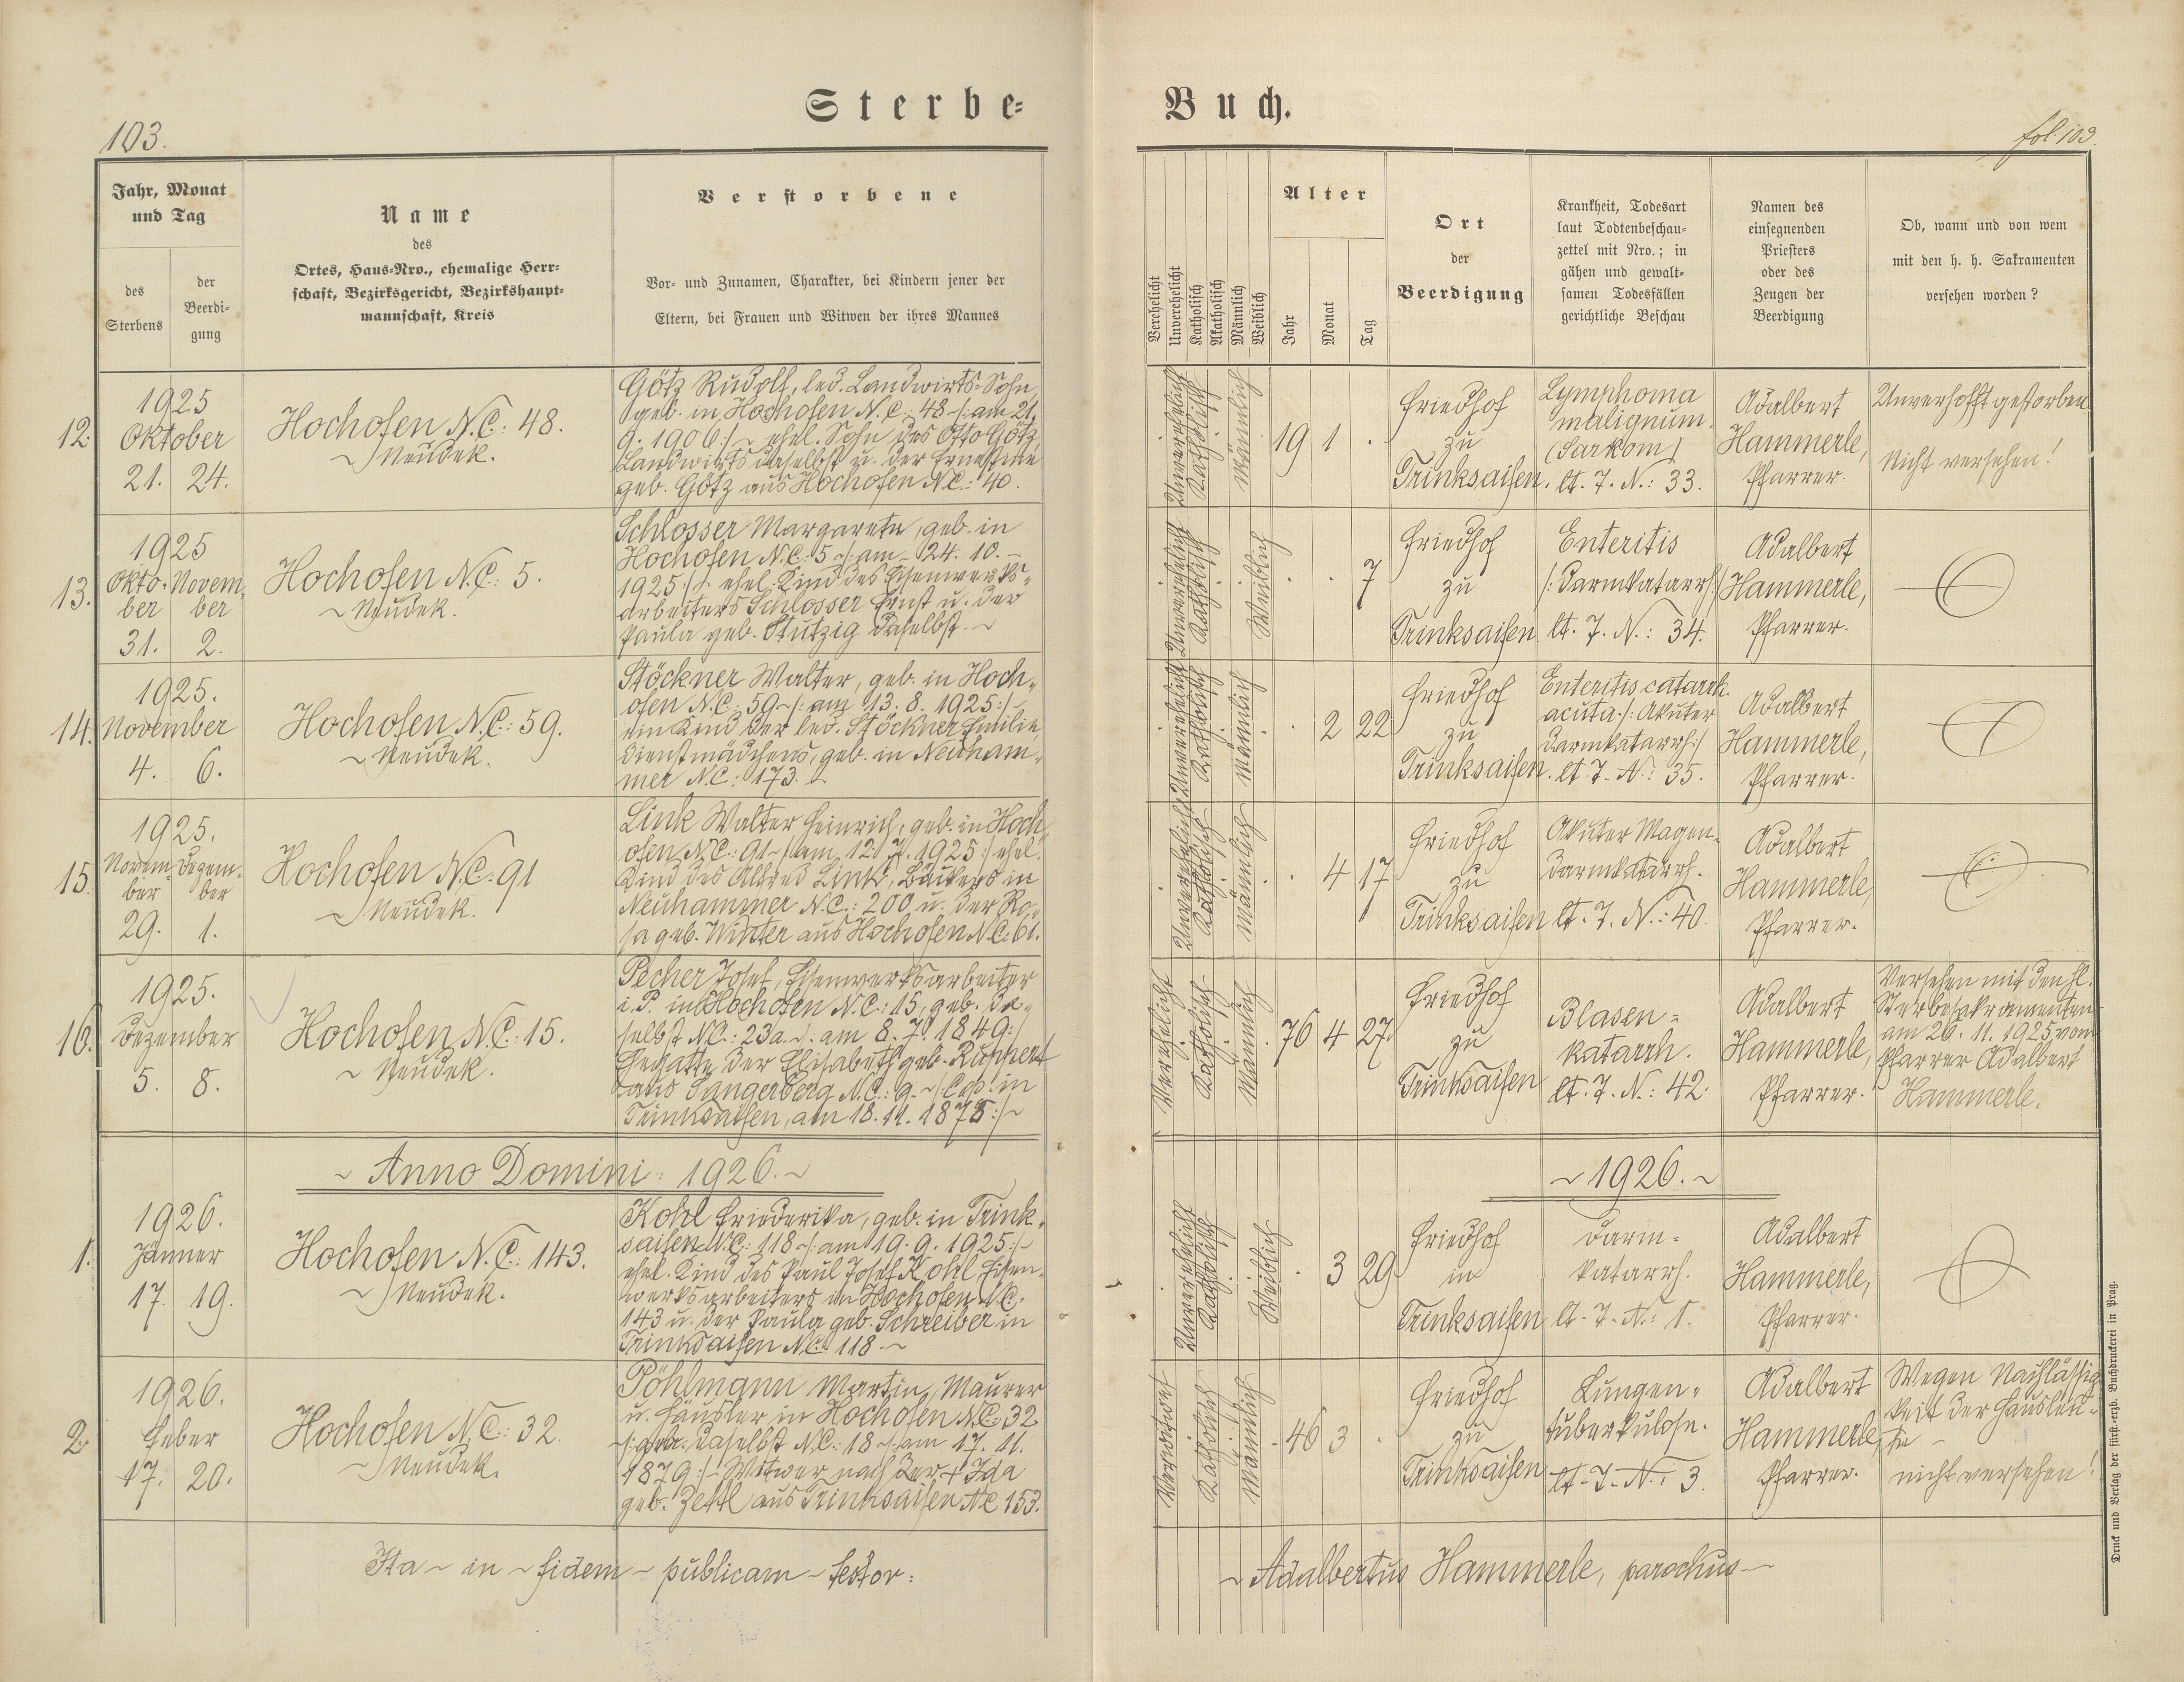 Sterbe-
Buch.
103.
fol. 103.
Jahr, Monat
und Tag
des
Sterbens
der
Beerdi-
gung
Name
des
Ortes, Haus-Nro., ehemalige Herr-
schaft, Bezirksgericht, Bezirkshaupt-
mannschaft, Kreis
Verstorbene
Vor- und Zunamen, Charakter, bei Kindern jener der
Eltern, bei Frauen und Witwen der ihres Mannes
Verehelicht
Unverehelicht
Katholisch
Akatholisch
Männlich
Weiblich
Alter
Jahr
Monat
Tag
Ort
der
Beerdigung
Krankheit, Todesart
laut Todtenbeschau-
zettel mit Nro.; in
gähen und gewalt-
samen Todesfällen
gerichtliche Beschau
Namen des
einsegnenden
Priesters
oder des
Zeugen der
Beerdigung
Ob, wann und von wem
mit den h. h. Sakramenten
versehen worden?
12.
1925
Oktober
21. 24.
Hochofen N.C: 48.
~ Neudek.
Götz Rudolf, led. Landwirts-Sohn,
geb. in Hochofen N.C: 48 ~/: am 21.
9. 1906:/~ ehel. Sohn des Otto Götz,
Landwirts daselbst u. der Ernestine
geb. Götz aus Hochofen N.C.: 40.
Unverehelicht
Katholisch
Männlich
19 1 .
Friedhof
zu
Trinksaifen.
Lymphoma
malignum.
(Sarkom)
lt. T. N.: 33.
Adalbert
Hammerle,
Pfarrer.
Unverhofft gestorben
Nicht versehen!
13.
1925
Okto- Novem-
ber ber
31. 2.
Hochofen N.C: 5.
~ Neudek.
Schlosser Margarete, geb. in
Hochofen N.C: 5 ~/: am 24. 10. ~
1925:/~ ehel. Kind des Eisenwerks-
arbeiters Schlosser Ernst u. der
Paula geb. Stutzig daselbst. ~
Unverehelicht
Katholisch
Weiblich
. . 7
Friedhof
zu
Trinksaifen
Enteritis
/: Darmkatarrh:/
lt. T. N.: 34.
Adalbert
Hammerle,
Pfarrer.
14.
1925.
November
4. 6.
Hochofen N.C: 59.
~ Neudek.
Stöckner Walter, geb. in Hoch-
ofen N.C: 59 ~/: am 13. 8. 1925:/~
ein Kind der led. Stöckner Emilie,
Dienstmädchens, geb. in Neuham-
mer N.C: 173.
Unverehelicht
Katholisch
Männlich
. 2 22
Friedhof
zu
Trinksaifen.
Enteritis catarrh.
acuta ./: Akuter
Darmkatarrh:/
lt. T. N.: 35.
Adalbert
Hammerle,
Pfarrer.
15.
1925.
Novem- Dezem-
ber ber
29. 1.
Hochofen N.C: 91
~ Neudek.
Link Walter Heinrich, geb. in Hoch-
ofen N.C.: 91 ~/: am 12. 7. 1925:/ ehel.
Kind des Alfred Link, Bäckers in
Neuhammer N.C.: 200 u. der Ro-
sa geb. Winter aus Hochofen N.C. 61.
Unverehelicht
Katholisch
Männlich
. 4 17
Friedhof
zu
Trinksaifen
Akuter Magen-
darmkatarrh.
lt. T. N.: 40.
Adalbert
Hammerle,
Pfarrer.
16.
1925.
Dezember
5. 8.
Hochofen N.C: 15.
~ Neudek.
Pecher Josef, Eisenwerksarbeiter
i. P. in Hochofen N.C.: 15, geb. da-
selbst N.C.: 23a ~/: am 8. 7. 1849:/
Gegatte der Elisabeth geb. Ruppert
aus Sangerberg N.C.: 9. ~/: Cop. in
Trinksaifen, am 18. 11. 1878:/~
Verehelicht
Katholisch
Männlich
76 4 27
Friedhof
zu
Trinksaifen
Blasen-
katarrh.
lt. T. N.: 42.
Adalbert
Hammerle,
Pfarrer.
Versehen mit den hl.
Sterbesakramenten
am 26. 11. 1925 vom
Pfarrer Adalbert
Hammerle.
~ Anno Domini: 1926. ~
~ 1926. ~
1.
1926.
Jänner
17. 19.
Hochofen N.C: 143.
~ Neudek.
Kohl Friederika, geb. in Trink-
saifen N.C: 118 ~/: am 19. 9. 1925:/~
ehel. Kind des Paul Josef Kohl Eisen-
werksarbeiters in Hochofen N.C.
143 u. der Paula geb. Schreiber in
Trinksaifen N.C: 118 ~
Unverehelicht
Katholisch
Weiblich
. 3 29
Friedhof
in
Trinksaifen
Darm-
katarrh.
lt. T. N.: 1.
Adalbert
Hammerle,
Pfarrer.
2.
1926.
Feber
17. 20.
Hochofen N.C: 32.
~ Neudek.
Pöhlmann Martin, Maurer
u. Häusler in Hochofen N.C: 32
~/: geb. daselbst N.C: 18 ~/: am 17. 11.
1879:/~ Witwer nach der + Ida
geb. Zettl aus Trinksaifen N.C 153.
Verwitwet
Katholisch
Männlich
46 3 .
Friedhof
zu
Trinksaifen
Lungen-
tuberkulose.
lt. T. N.: 3.
Adalbert
Hammerle,
Pfarrer.
Wegen Nachlässig-
keit der Hausleu-
te ~
nicht versehen!
Ita ~ in ~ fidem ~ publicam ~ testor:
~ Adalbertus Hammerle, parochus ~
Druck und Verlag der fürst.-erzb. Buchdruckerei in Prag.